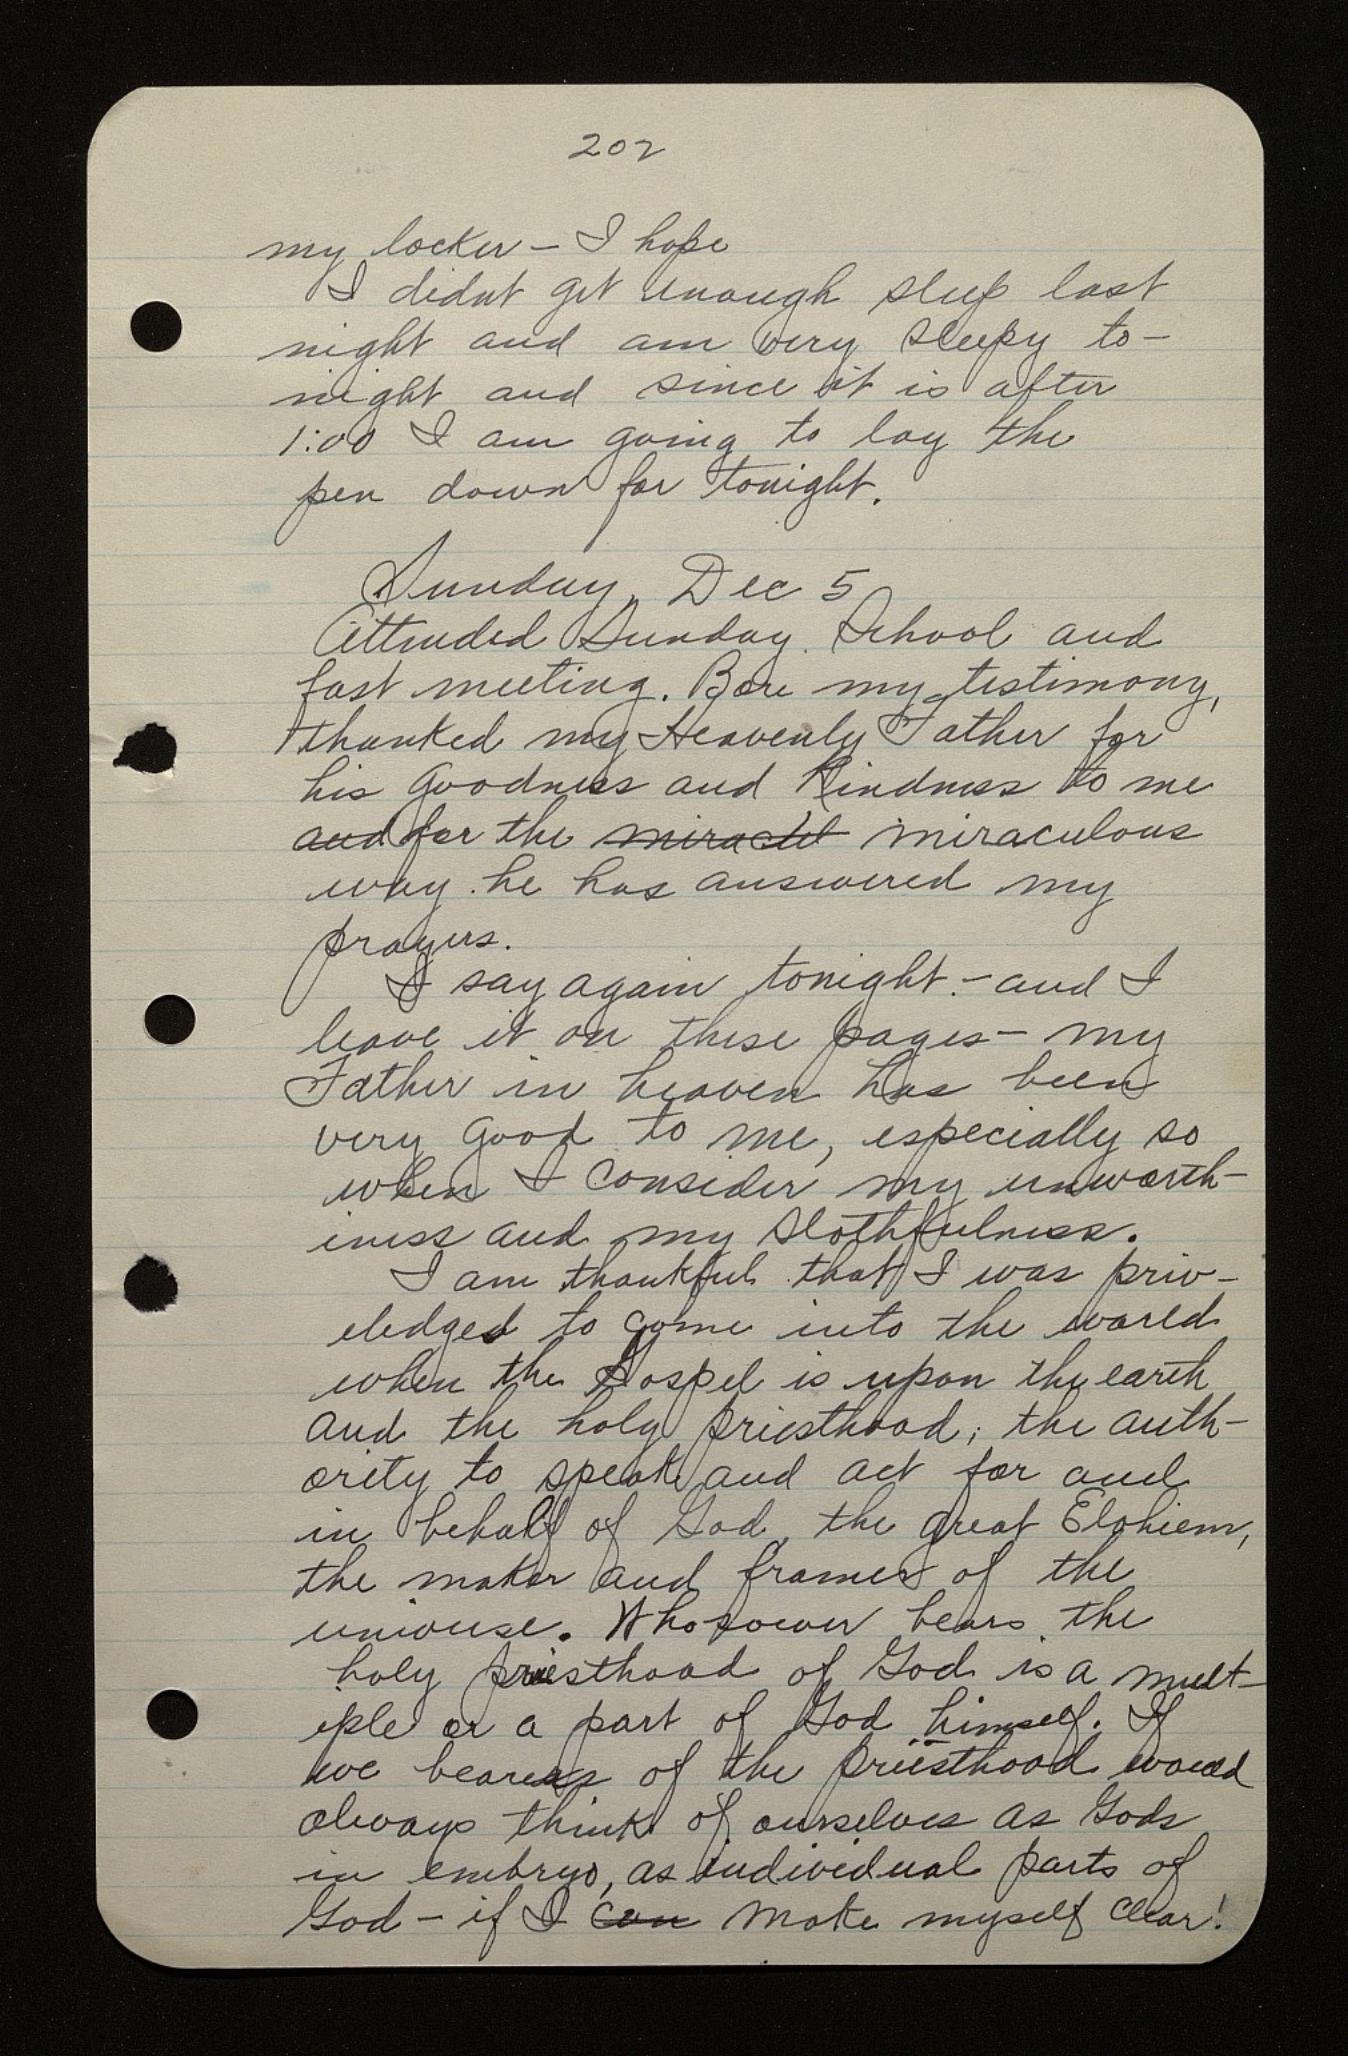 202
my locker - I hope
I didnt get enough sleep last
night and am very sleepy to-
night and since it is after
1:00 I am going to lay the
pen down for tonight.
Sunday, Dec 5
Attended Sunday School and
fast meeting. Bore my testimony,
thanked my Heavenly Father for
his goodness and kindness to me
and for the miraclel miraculous
way he has answered my
prayers.
I say again tonight - and I
leave it on these pages - my
Father in heaven has been
very good to me, especially so
when I consider my unworth-
iness and my slothfulness.
I am thankful that I was priv-
eledged to come into the world
when the Gospel is upon the earth
and the holy priesthood, the auth-
ority to speak and act for and
in behalf of God, the great Elohiem,
the maker and framer of the
universe. Whosoever bears the
holy priesthood of God is a mult-
iple or a part of God himself. If
we bearers of the priesthood would
always think of ourselves as Gods
in embryo, as individual parts of
God - if I can make myself clear!